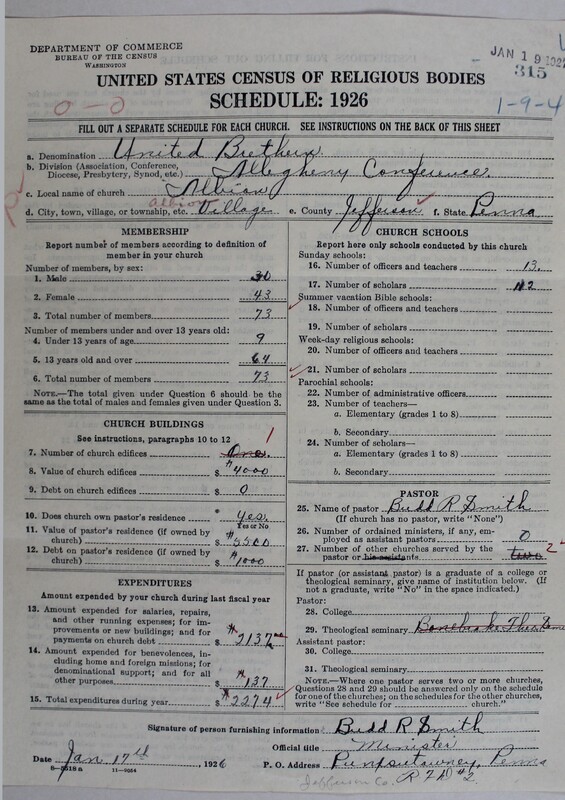 DEPARTMENT OF COMMERCE
BUREAU OF THE CENSUS
WASHINGTON
JAN 19 1927
315
UNITED STATES CENSUS OF RELIGIOUS BODIES
SCHEDULE: 1926
0-0
1-9-4
FILL OUT A SEPARATE SCHEDULE FOR EACH CHURCH. SEE INSTRUCTIONS ON THE BACK OF THIS SHEET
a. Denomination United Brethren
b. Division (Association, Conference, Diocese, Presbytery, Synod, etc.) Allegheny Conference.
c. Local name of church Albion
d. City, town, village, or township, etc. Albion Village e. County Jefferson f. State Penna
MEMBERSHIP
Report number of members according to definition of
member in your church
Number of members, by sex:
1. Male 30
2. Female 43
3. Total number of members 73
Number of members under and over 13 years old:
4. Under 13 years of age 9
5. 13 years old and over 64
6. Total number of members 73
NOTE.—The total given under Question 6 should be the
same as the total of males and females given under Question 3.
CHURCH BUILDINGS
See instructions, paragraphs 10 to 12
7. Number of church edifices One. 1
8. Value of church edifices $ 4000
9. Debt on church edifices $ 0
10. Does church own pastor's residence Yes.
Yes or No
11. Value of pastor's residence (if owned by
church) $ 5500
12. Debt on pastor's residence (if owned by
church) $ 1000
EXPENDITURES
Amount expended by your church during last fiscal year
13. Amount expended for salaries, repairs,
and other running expenses; for im-
provements or new buildings; and for
payments on church debt $ 2137
14. Amount expended for benevolences, in-
cluding home and foreign missions; for
denominational support; and for all
other purposes $ 137
15. Total expenditures during year $ 2274
CHURCH SCHOOLS
Report here only schools conducted by this church
Sunday schools:
16. Number of officers and teachers 13.
17. Number of scholars 112
Summer vacation Bible schools:
18. Number of officers and teachers
19. Number of scholars
Week-day religious schools:
20. Number of officers and teachers
21. Number of scholars
Parochial schools:
22. Number of administrative officers
23. Number of teachers—
a. Elementary (grades 1 to 8)
b. Secondary
24. Number of scholars—
a. Elementary (grades 1 to 8)
b. Secondary
PASTOR
25. Name of pastor Budd R Smith
(If church has no pastor, write "None")
26. Number of ordained ministers, if any, em-
ployed as assistant pastors 0
27. Number of other churches served by the
pastor or his assistants two 2
If pastor (or assistant pastor) is a graduate of a college or
theological seminary, give name of institution below. (If
not a graduate, write "No" in the space indicated.)
Pastor:
28. College
29. Theological seminary Bonebrake
Assistant pastor:
30. College
31. Theological seminary
NOTE.—Where one pastor serves two or more churches,
Questions 28 and 29 should be answered only on the schedule
for one of the churches; on the schedules for the other churches,
write "See schedule for church."
Signature of person furnishing information Budd R Smith
Official title Minister
Date Jan 17th, 1926 P. O. Address Punxsutawney, Penna
8—5518a 11—8664
Jefferson Co. R F D #2